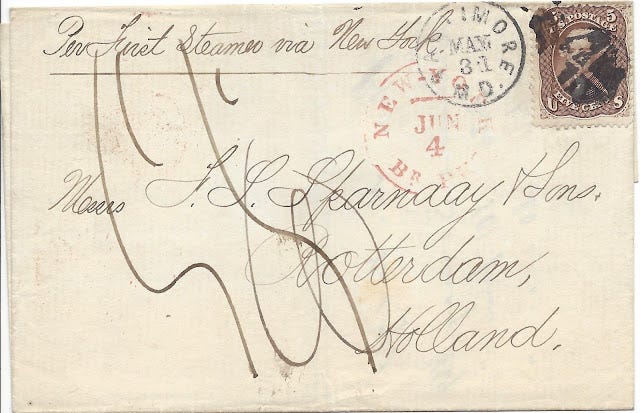 Per First Steamer via New York
BALTIMORE MD.
MAY
31
5 U.S. POSTAGE 5
U FIVE CENTS S
NEW
JUN
4
BR.
Messrs Sparnaay & Sons.
Rotterdam,
Holland.